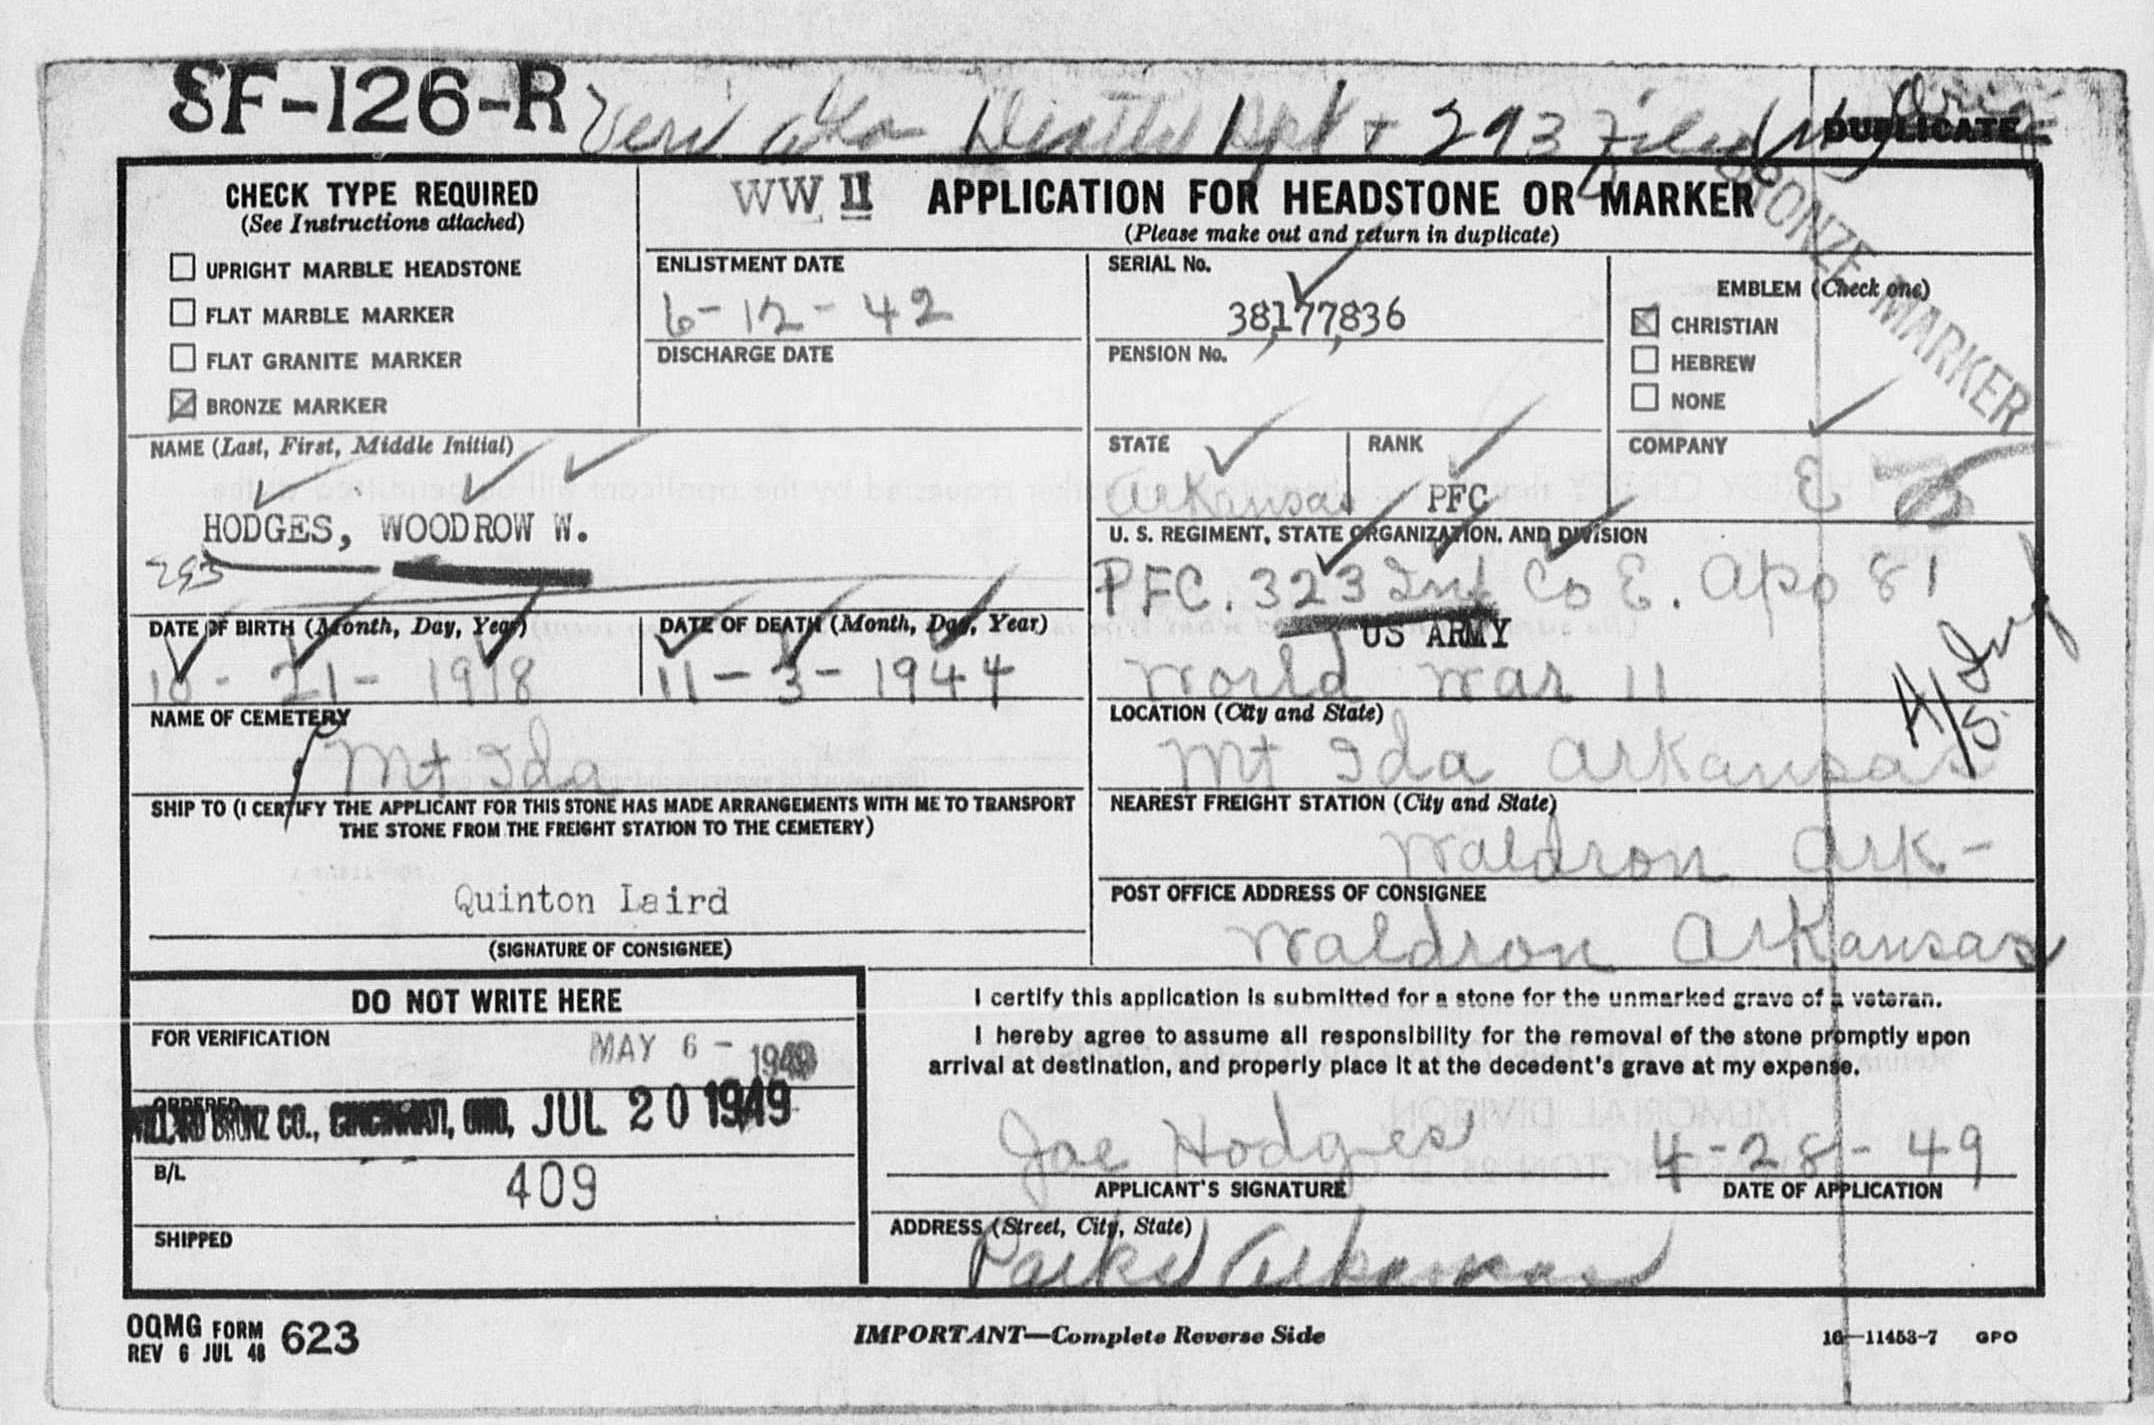 SF-126-R Veri Death Rpt + 293 File Orig
DUPLICATE
CHECK TYPE REQUIRED
(See Instructions attached)
UPRIGHT MARBLE HEADSTONE
FLAT MARBLE MARKER
FLAT GRANITE MARKER
BRONZE MARKER
WW II APPLICATION FOR HEADSTONE OR MARKER
(Please make out and return in duplicate)
BRONZE MARKER
ENLISTMENT DATE
6-12-42
DISCHARGE DATE
SERIAL No.
38177836
PENSION No.
EMBLEM (Check one)
CHRISTIAN
HEBREW
NONE
NAME (Last, First, Middle Initial)
HODGES, WOODROW W.
293
STATE
Arkansas
RANK
PFC
COMPANY
E
U. S. REGIMENT, STATE ORGANIZATION, AND DIVISION
PFC. 323 Inf Co E. Apo 81
US ARMY
World War 11
DATE OF BIRTH (Month, Day, Year)
10-21-1918
DATE OF DEATH (Month, Day, Year)
11-3-1944
NAME OF CEMETERY
Mt Ida
LOCATION (City and State)
Mt Ida Arkansas
SHIP TO (I CERTIFY THE APPLICANT FOR THIS STONE HAS MADE ARRANGEMENTS WITH ME TO TRANSPORT
THE STONE FROM THE FREIGHT STATION TO THE CEMETERY)
Quinton Laird
(SIGNATURE OF CONSIGNEE)
NEAREST FREIGHT STATION (City and State)
Waldron Ark-
POST OFFICE ADDRESS OF CONSIGNEE
Waldron Arkansas
DO NOT WRITE HERE
FOR VERIFICATION
MAY 6 - 1949
ORDERED
WILLARD BRONZ CO., CINCINNATI, OHIO, JUL 20 1949
B/L
409
SHIPPED
I certify this application is submitted for a stone for the unmarked grave of a veteran.
I hereby agree to assume all responsibility for the removal of the stone promptly upon
arrival at destination, and properly place it at the decedent's grave at my expense.
Joe Hodges
APPLICANT'S SIGNATURE
4-28-49
DATE OF APPLICATION
ADDRESS (Street, City, State)
Parks Arkansas
OQMG FORM 623
REV 6 JUL 48
IMPORTANT—Complete Reverse Side
16—11453-7 GPO